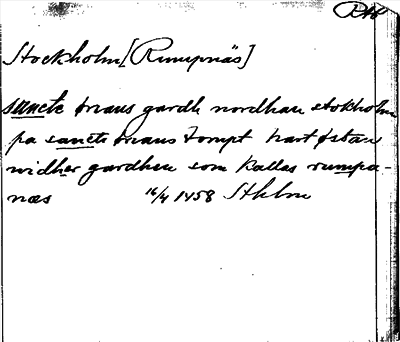 RAp
Stockholm [Rumpnäs]
sancte örians gardh nordhan stokholm
pa sancte örians tompt hart østan
widher gardhen som kallas rumpa-
næs 16/4 1458 Sthlm